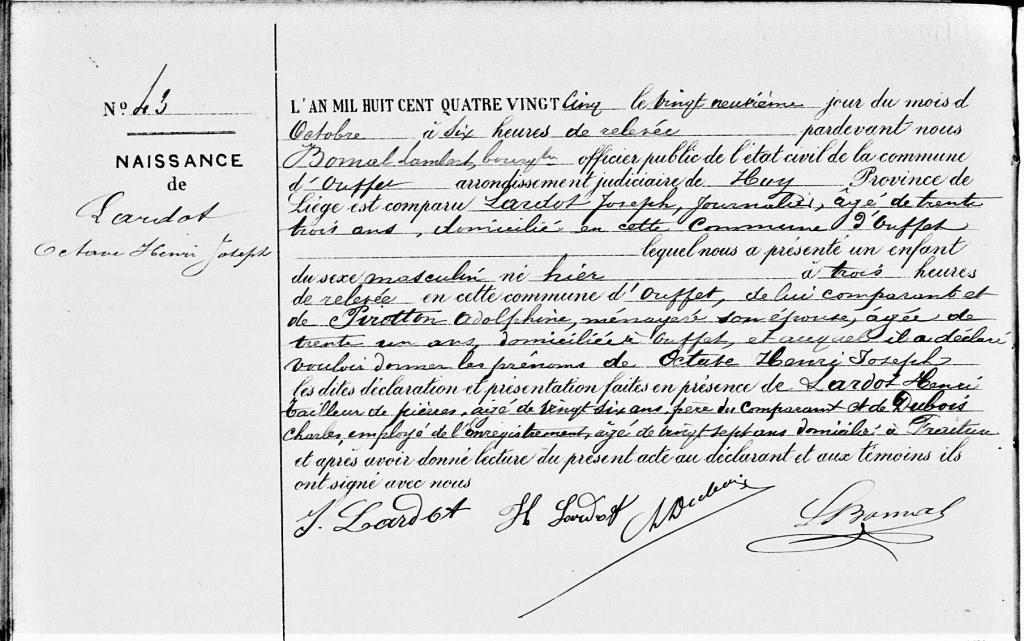 N° 43
NAISSANCE
de
Lardot
Octave Henri Joseph
L'AN MIL HUIT CENT QUATRE VINGT Cinq le vingt neuxième jour du mois d
Octobre à six heures de relevée pardevant nous
Bomal Lambert, officier public de l'état civil de la commune
d'Ouffet arrondissement judiciaire de Huy Province de
Liège est comparu Lardot Joseph, Journalier, âgé de trente
trois ans, domicilié en cette Commune d'Ouffet
lequel nous a présenté un enfant
du sexe masculin né hier à trois heures
de relevée en cette commune d'Ouffet, de lui comparant et
de Pirotton Adolphine, ménagère son épouse, âgée de
trente un ans, domiciliée à Ouffet, et auquel il a déclaré
vouloir donner les prénoms de Octave Henri Joseph
les dites déclaration et présentation faites en présence de Lardot Henri
tailleur de pierres, âgé de vingt six ans, frère du comparant et de Dubois
Charles, employé de l'enregistrement, âgé de vingt sept ans domicilié à
et après avoir donné lecture du présent acte au déclarant et aux témoins ils
ont signé avec nous
J. Lardot H Lardot Dubois L Bomal